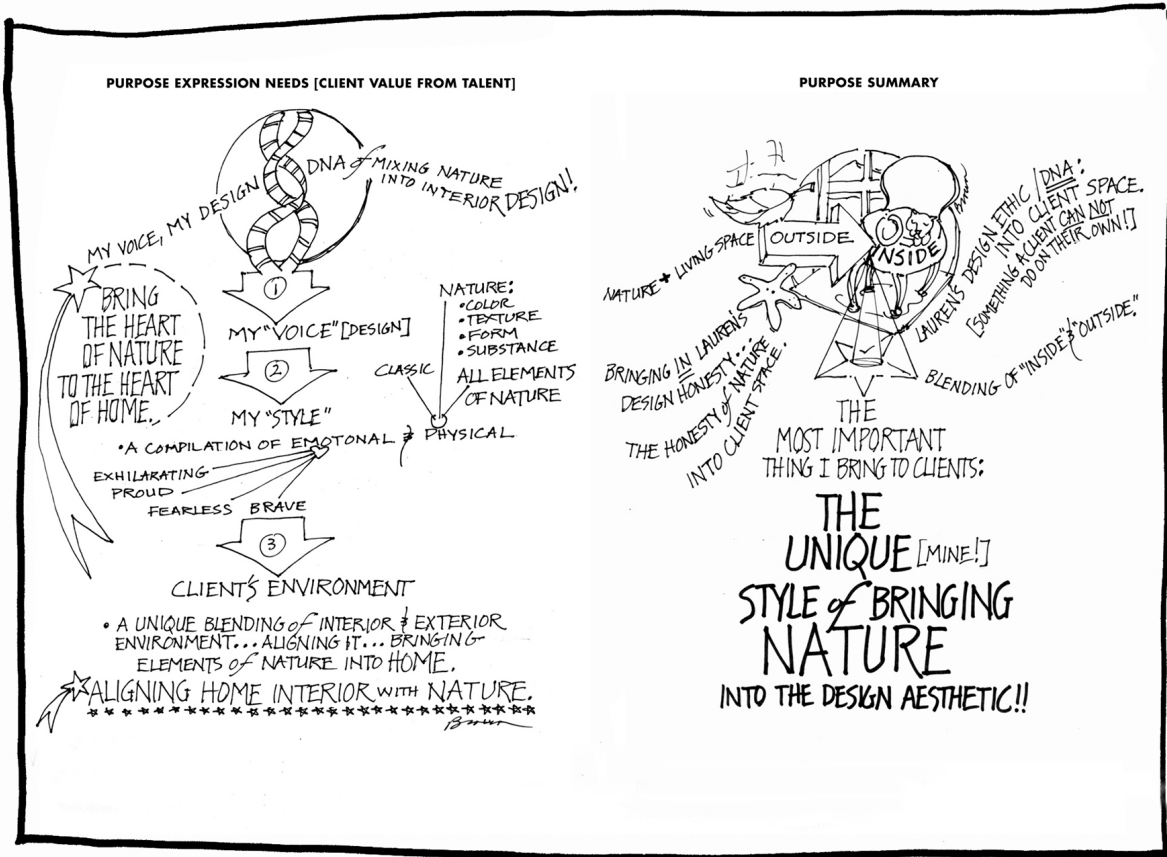 PURPOSE EXPRESSION NEEDS [CLIENT VALUE FROM TALENT]
MY VOICE, MY DESIGN
DNA of MIXING NATURE
INTO INTERIOR DESIGN!
BRING
THE HEART
OF NATURE
TO THE HEART
OF HOME.
1
MY "VOICE" [DESIGN]
2
MY "STYLE"
NATURE:
• COLOR
• TEXTURE
• FORM
• SUBSTANCE
CLASSIC
ALL ELEMENTS
OF NATURE
• A COMPILATION OF EMOTONAL & PHYSICAL
EXHILARATING
PROUD
FEARLESS
BRAVE
3
CLIENT'S ENVIRONMENT
• A UNIQUE BLENDING of INTERIOR & EXTERIOR
ENVIRONMENT... ALIGNING IT... BRINGING
ELEMENTS of NATURE INTO HOME.
ALIGNING HOME INTERIOR WITH NATURE.
PURPOSE SUMMARY
NATURE + LIVING SPACE
OUTSIDE
INSIDE
LAUREN'S DESIGN ETHIC / DNA:
INTO CLIENT SPACE.
[SOMETHING A CLIENT CAN NOT
DO ON THEIR OWN!]
BRINGING IN LAUREN'S
DESIGN HONESTY...
THE HONESTY of NATURE
INTO CLIENT SPACE.
BLENDING OF "INSIDE" & "OUTSIDE."
THE
MOST IMPORTANT
THING I BRING TO CLIENTS:
THE
UNIQUE [MINE!]
STYLE of BRINGING
NATURE
INTO THE DESIGN AESTHETIC!!